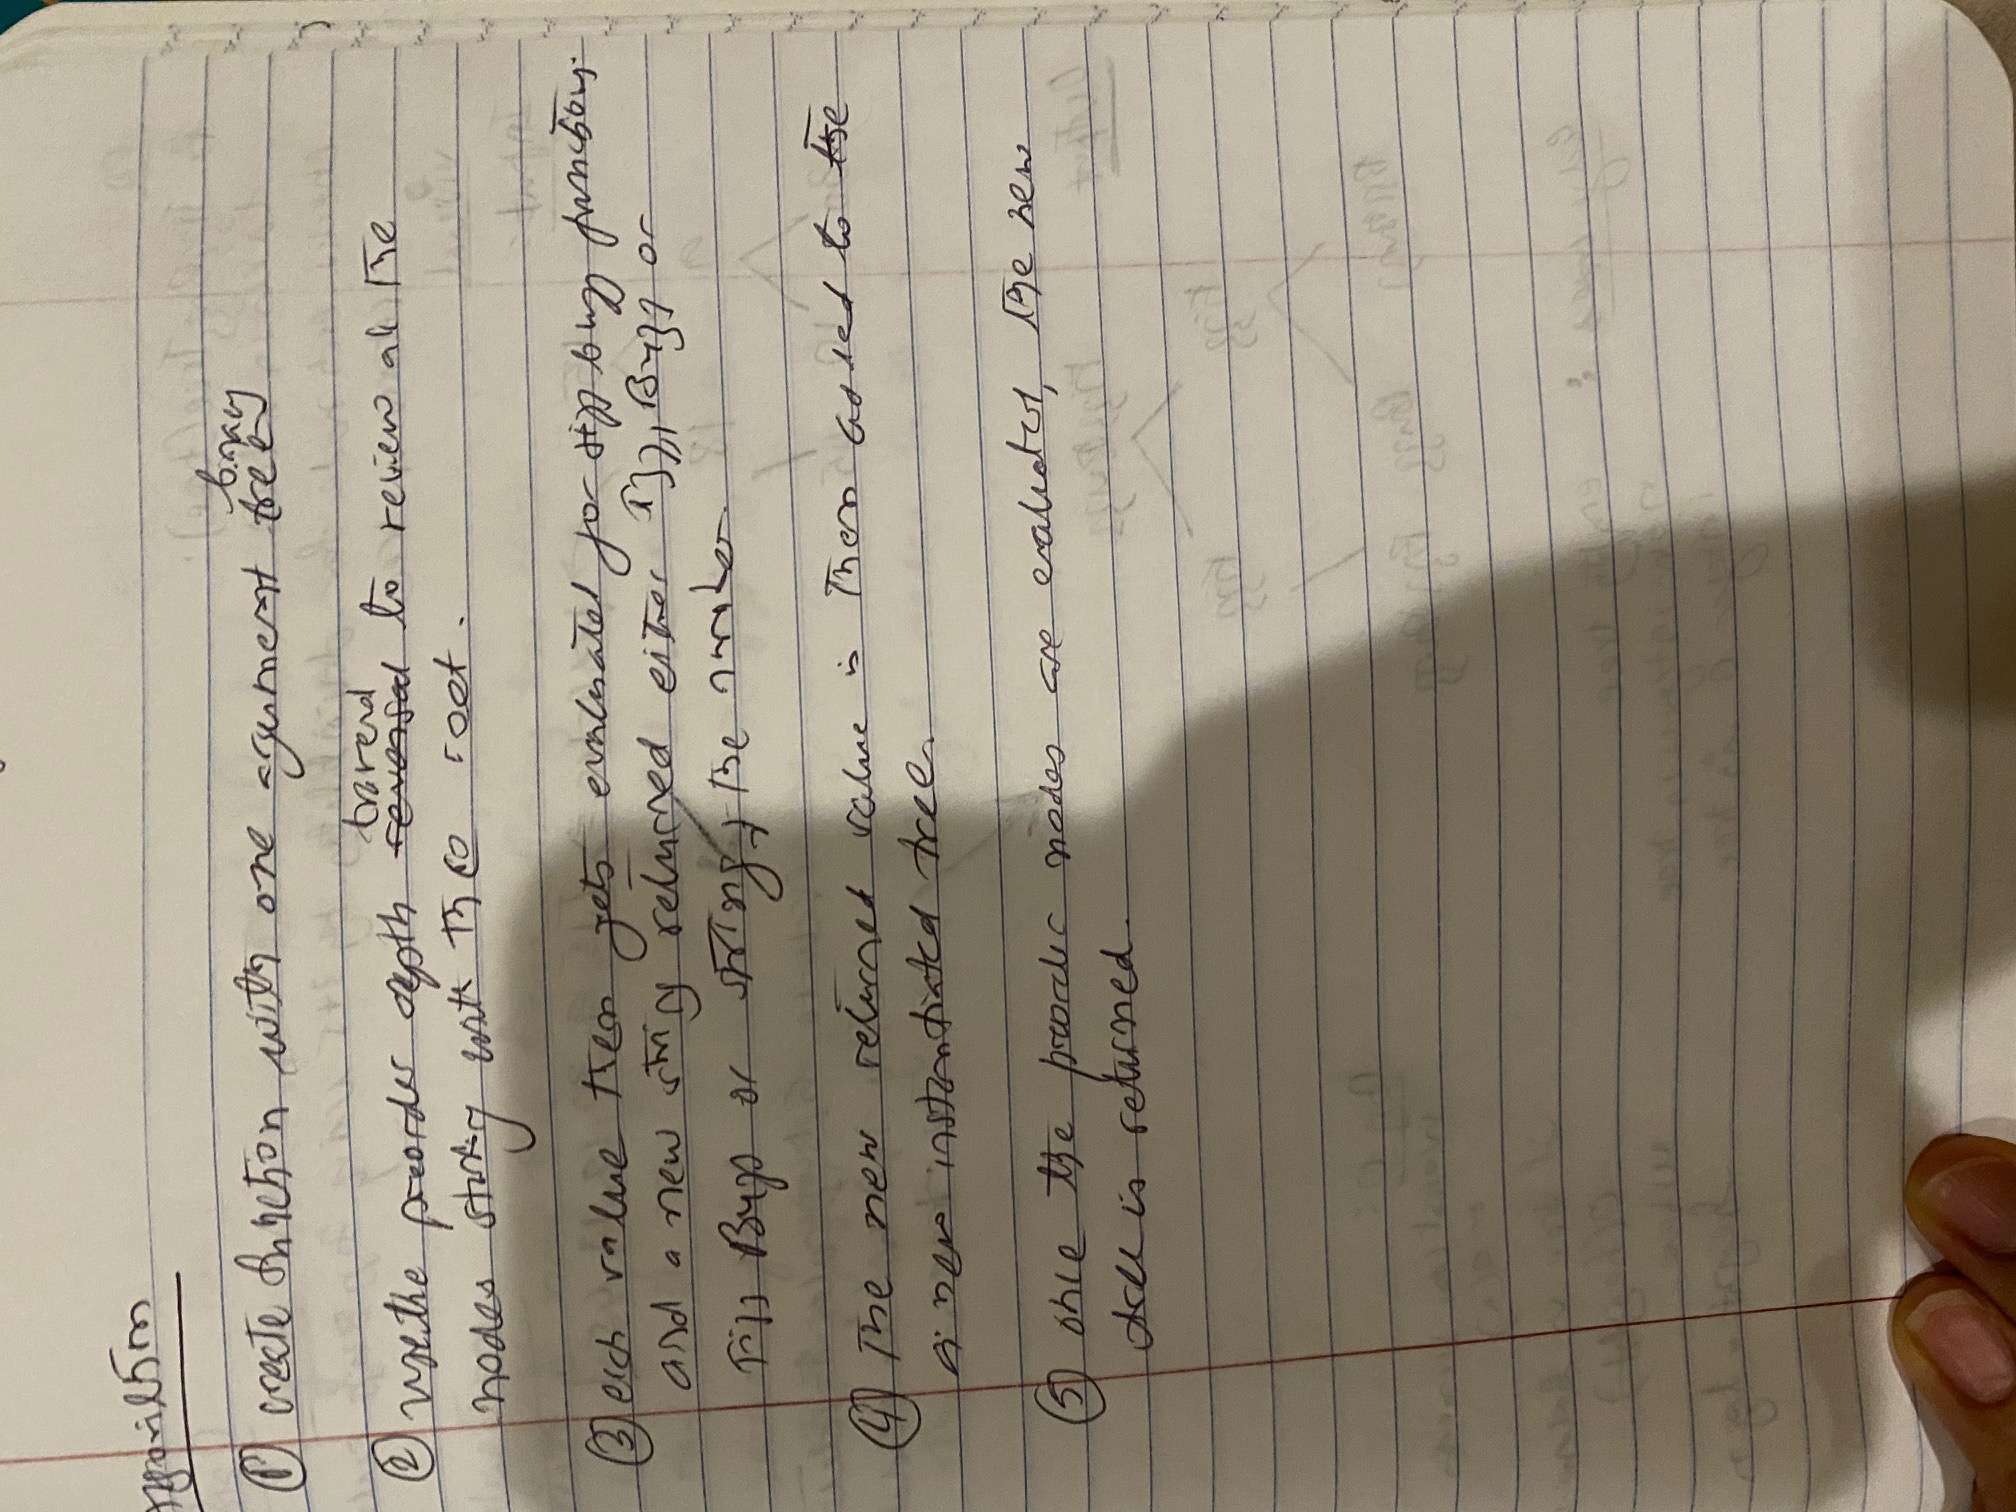 Algorithm
① create function with one argument binary tree
② use the preorder depth traversal to review all the
nodes starting with the root.
③ each value then gets evaluated for fizz buzz function.
and a new string returned either Fizz, Buzz or
Fizz Buzz or string, the number
④ The new returned value is then added to the
a new instantiated tree.
⑤ once the preorder nodes are evaluated, the new
tree is returned.